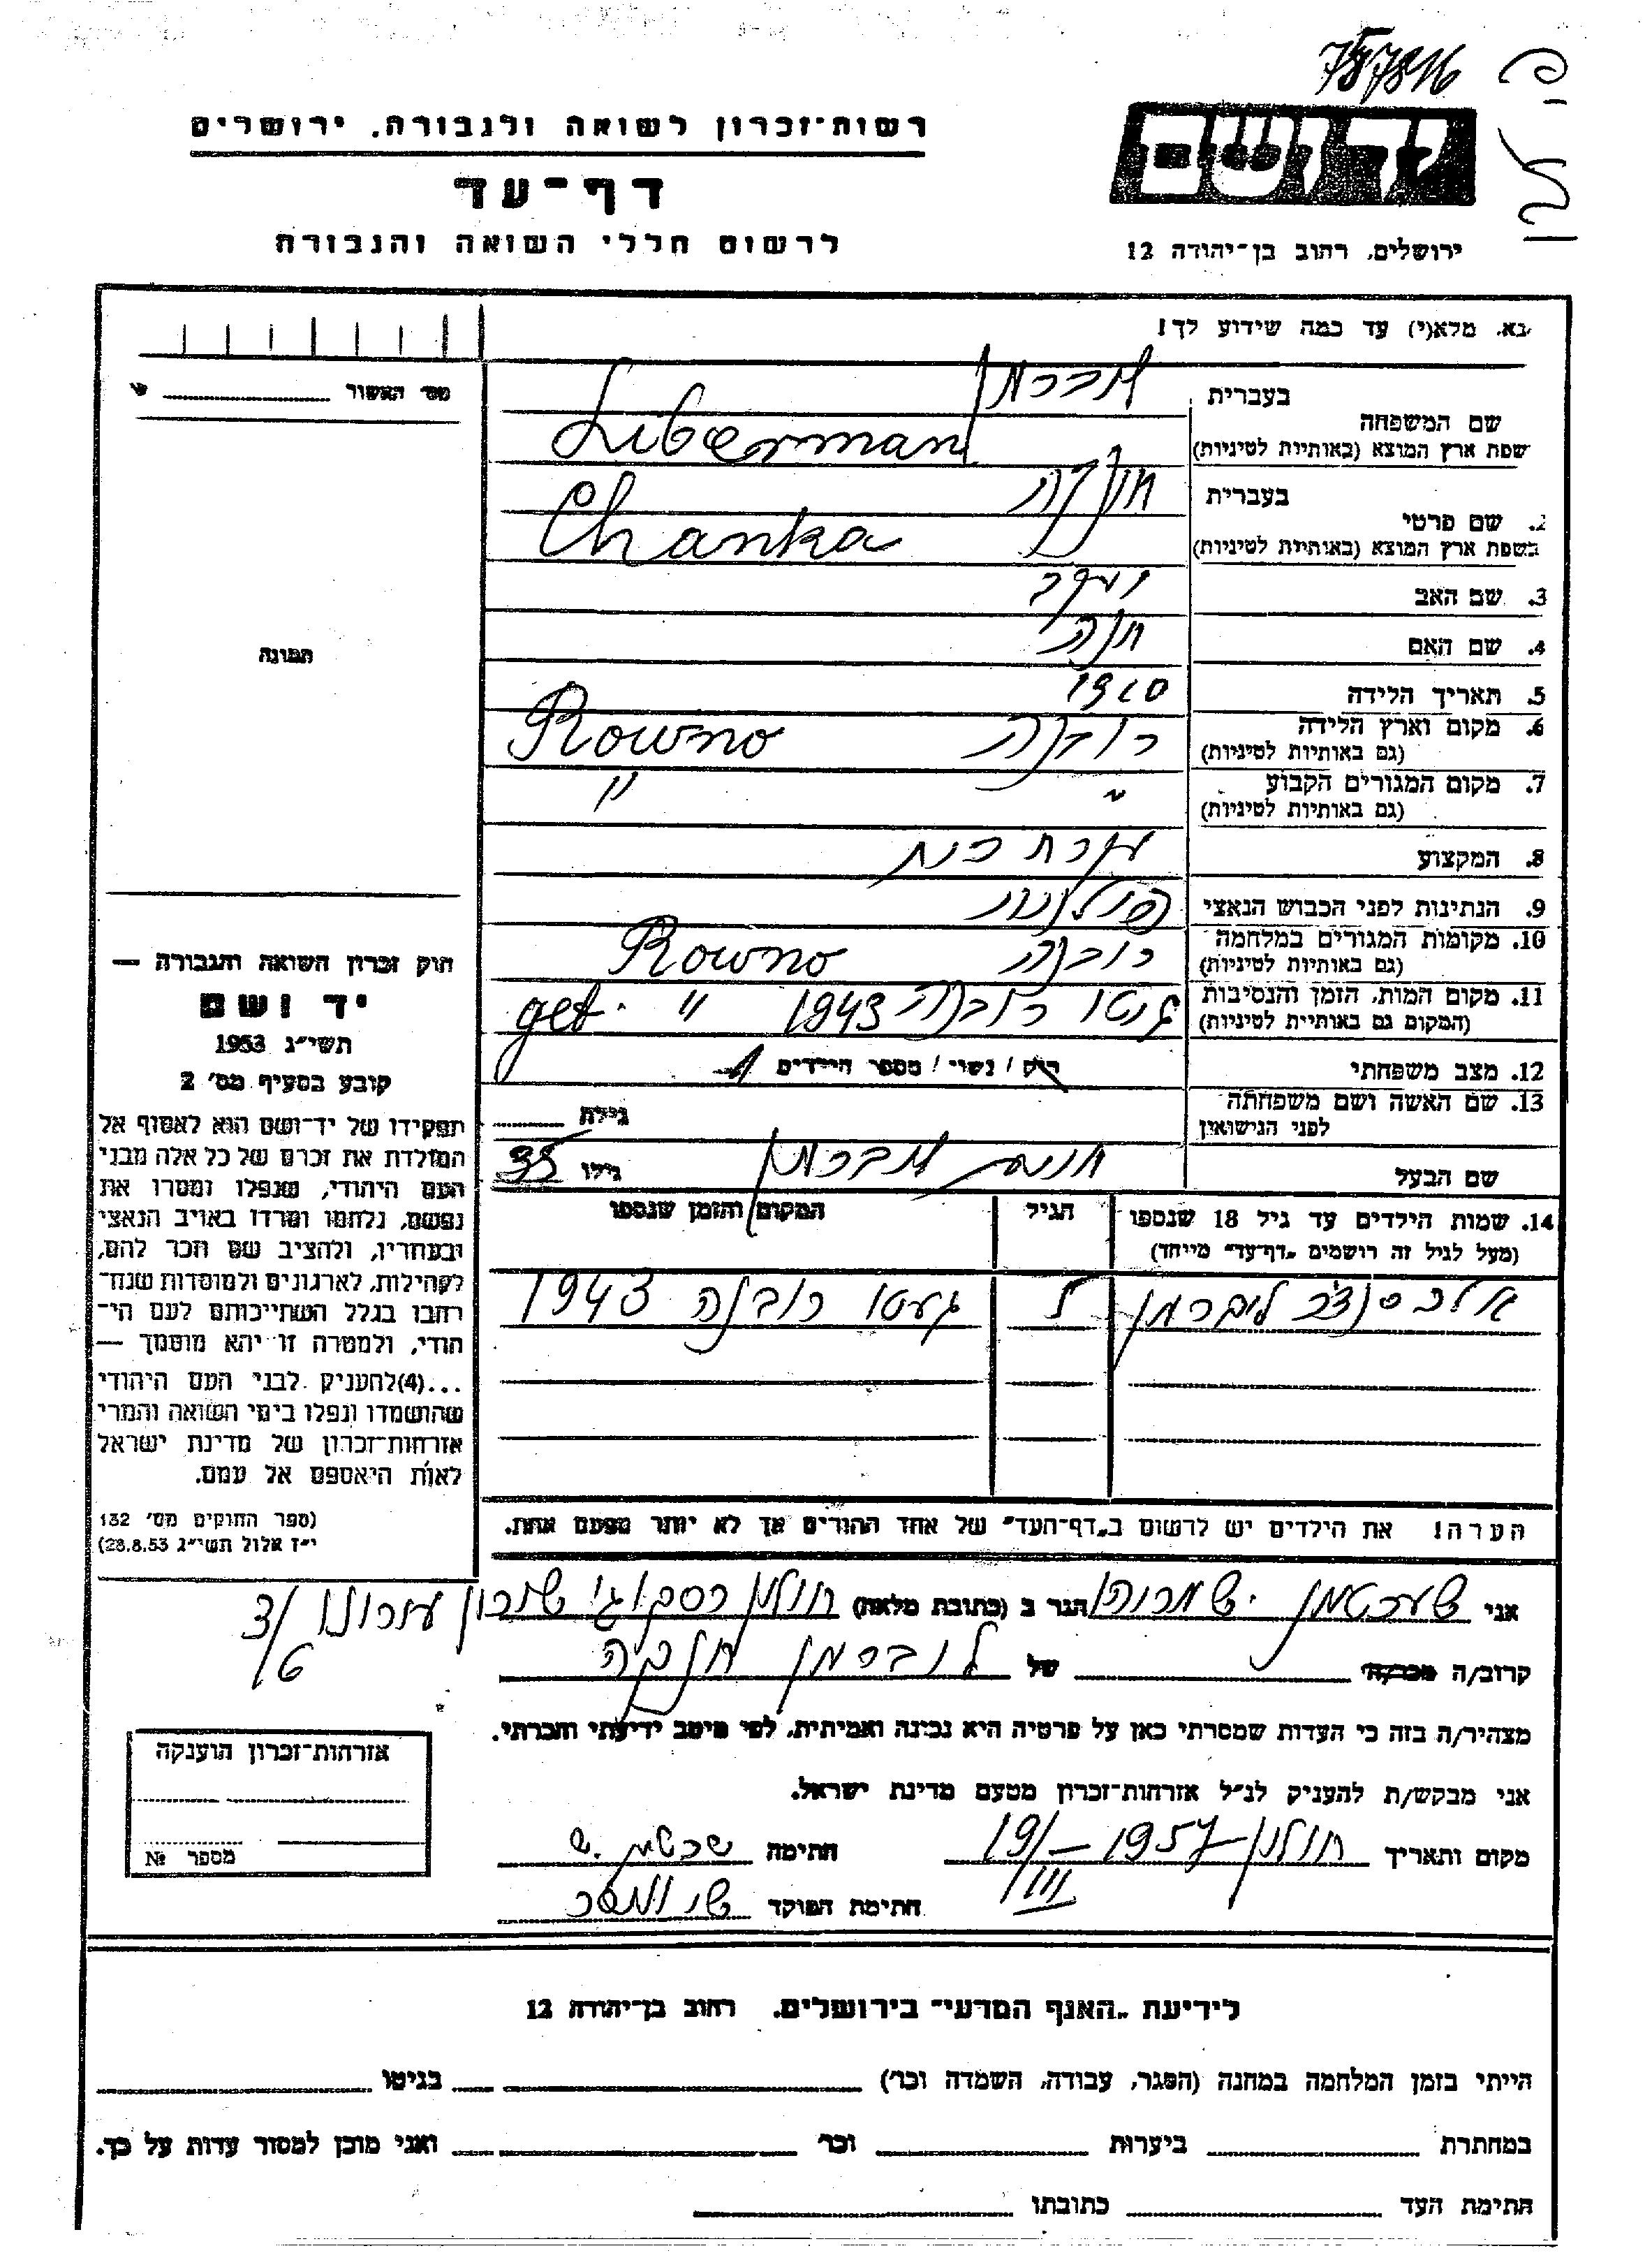 757816
רשות־זכרון לשואה ולגבורה, ירושלים
דף־עד
לרשום חללי השואה והגבורה
יד ושם
ירושלים, רחוב בן־יהודה 12
נא. מלא(י) עד כמה שידוע לך!
מס' האשור
שם המשפחה
בעברית ליברמן
שפת ארץ המוצא (באותיות לטיניות) Liberman
2. שם פרטי
בעברית חנקה
בשפת ארץ המוצא (באותיות לטיניות) Chanka
3. שם האב יעקב
4. שם האם חנה
תמונה
5. תאריך הלידה 1910
6. מקום וארץ הלידה רובנה Rowno
(גם באותיות לטיניות)
7. מקום המגורים הקבוע " "
(גם באותיות לטיניות)
8. המקצוע עקרת בית
9. הנתינות לפני הכבוש הנאצי פולנית
10. מקומות המגורים במלחמה רובנה Rowno
(גם באותיות לטיניות)
11. מקום המות, הזמן והנסיבות גיטו רובנה 1943 " get.
(המקום גם באותיות לטיניות)
12. מצב משפחתי רוק / נשוי / מספר הילדים 1
13. שם האשה ושם משפחתה
לפני הנישואין גילה
שם הבעל ליברמן גילו 35
14. שמות הילדים עד גיל 18 שנספו הגיל המקום והזמן שנספו
(מעל לגיל זה רושמים „דף־עד" מייחד)
אלכסנדר ליברמן 7 געטו רובנה 1943
הערה! את הילדים יש לרשום ב„דף־העד" של אחד ההורים אך לא יותר מפעם אחת.
חוק זכרון השואה והגבורה —
יד ושם
תשי״ג 1953
קובע בסעיף מס' 2
תפקידו של יד־ושם הוא לאסוף אל
המולדת את זכרם של כל אלה מבני
העם היהודי, שנפלו ומסרו את
נפשם, נלחמו ומרדו באויב הנאצי
ובעוזריו, ולהציב שם וזכר להם,
לקהילות, לארגונים ולמוסדות שנח־
רבו בגלל השתייכותם לעם הי־
הודי, ולמטרה זו יהא מוסמך —
...(4) להעניק לבני העם היהודי
שהושמדו ונפלו בימי השואה והמרי
אזרחות־זכרון של מדינת ישראל
לאות היאספם אל עמם.
(ספר החוקים מס' 132
י״ז אלול תשי״ג 28.8.53)
אני שערטמן הגר ב (כתובת מלאה) חולון שכון עזרונו 3/
6/
קרוב/ה מכר/ה של ליברמן חנקה
מצהיר/ה בזה כי העדות שמסרתי כאן על פרטיה היא נכונה ואמיתית, לפי מיטב ידיעתי והכרתי.
אני מבקש/ת להעניק לנ״ל אזרחות־זכרון מטעם מדינת ישראל.
מקום ותאריך חולון 19/III–1957 חתימה
חתימת הפוקד
אזרחות־זכרון הוענקה
מספר №
לידיעת „האגף המדעי" בירושלים. רחוב בן־יהודה 12
הייתי בזמן המלחמה במחנה (הסגר, עבודה, השמדה וכו') בגיטו
במחתרת ביערות וכו' ואני מוכן למסור עדות על כך.
חתימת העד כתובתו